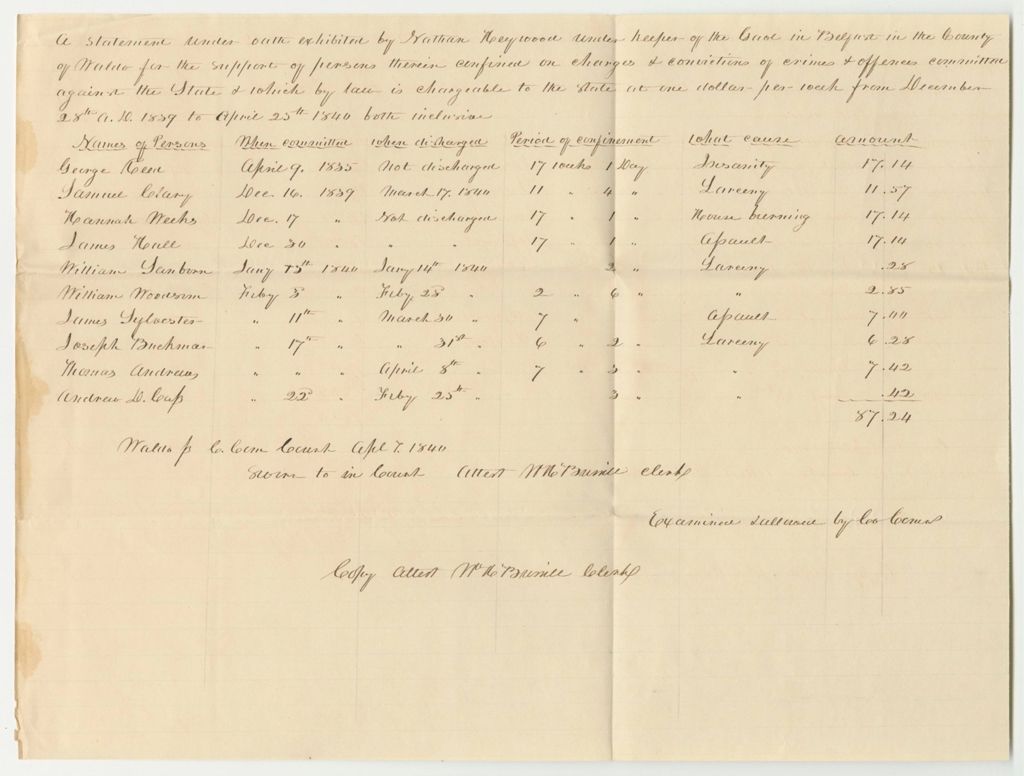 A Statement under oath exhibited by Nathan Heywood under keeper of the Gaol in Belfast in the County
of Waldo for the support of persons therein confined on charges & convictions of crimes & offences committed
against the State & which by law is chargeable to the state at one dollar per week from December
28th A.D. 1839 to April 25th 1840 both inclusive
Names of Persons When committed when discharged Period of confinement what cause amount
George Reed April 9. 1835 Not discharged 17 weeks 1 Day Insanity 17.14
Samuel Clary Dec. 16. 1839 March 17. 1840 11 " 4 " Larceny 11.57
Hannah Weeks Dec. 17 " Not discharged 17 " 1 " House burning 17.14
James Hall Dec 30 " " " 17 " 1 " Assault 17.14
William Sanborn Jany 13th 1840 Jany 14th 1840 2 " Larceny .28
William Woodsum Feby 3 " Feby. 28 " 2 " 6 " " 2.85
James Sylvester " 11th " March 30 " 7 " Assault 7.00
Joseph Buckmar " 17th " " 31st " 6 " 2 " Larceny 6.28
Thomas Andrews " " " April 8th " 7 " 3 " " 7.42
Andrew D. Cass " 22d " Feby 25th " 3 " " .42
87.24
Waldo ss C. Com Court Apl 7. 1840
Sworn to in Court Attest Clerk
Examined & allowed by Co Coms
Copy Attest Clerk